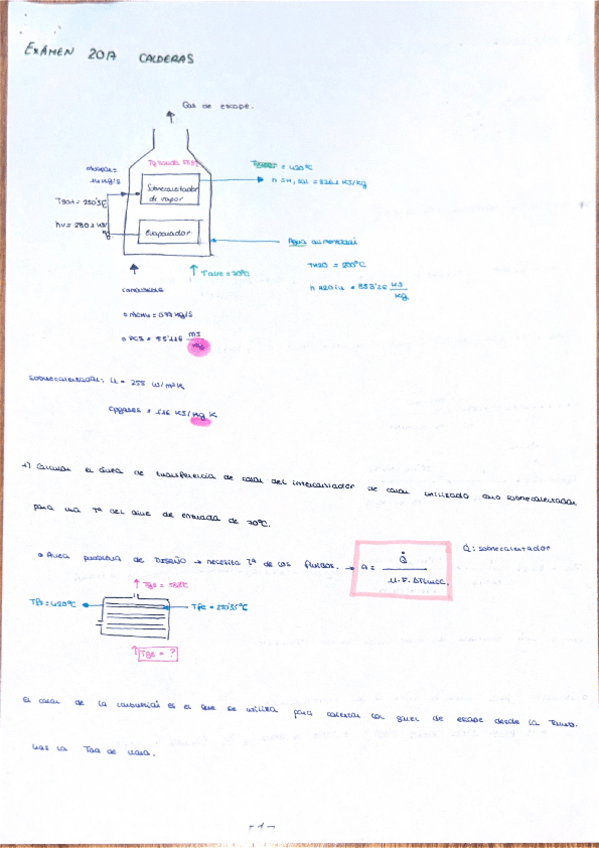 EXÁMEN 2017 CALDERAS
Gas de escape.
= 420°C
h SH, sal = 3261 KJ/kg
Sobrecalentador
de vapor
Evaporador
Agua alimentación
TH2O = 200°C
T aire = 70°C
combustible
KJ
kg
Sobrecalentador: U = 255 W/m²K
Cpgases = 1'16 KJ/kg K
1) Calcular el área de transferencia de calor del intercambiador de calor utilizado como sobrecalentador
para una Tª del aire de entrada de 70°C.
Área problema de DISEÑO → necesito Tª de los fluidos. → a = Q̇ / U·F·ΔTlmcc.
Q̇: sobrecalentador
Tfs = 420°C
Tge = ?
El calor de la combustión es el que se utiliza para calentar los gases de escape desde la Tamb.
hasta la Tad de llama.
- 1 -